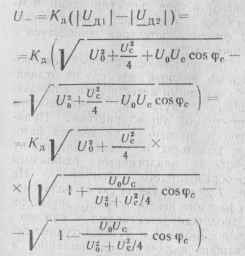 U₋ = K_д (|U̲_Д1| − |U̲_Д2|) =
= K_д (√(U₀² + U_c²/4 + U₀U_c cos φ_c) −
− √(U₀² + U_c²/4 − U₀U_c cos φ_c)) =
= K_д √(U₀² + U_c²/4) ×
× (√(1 + U₀U_c/(U₀² + U_c²/4) cos φ_c) −
− √(1 − U₀U_c/(U₀² + U_c²/4) cos φ_c)).